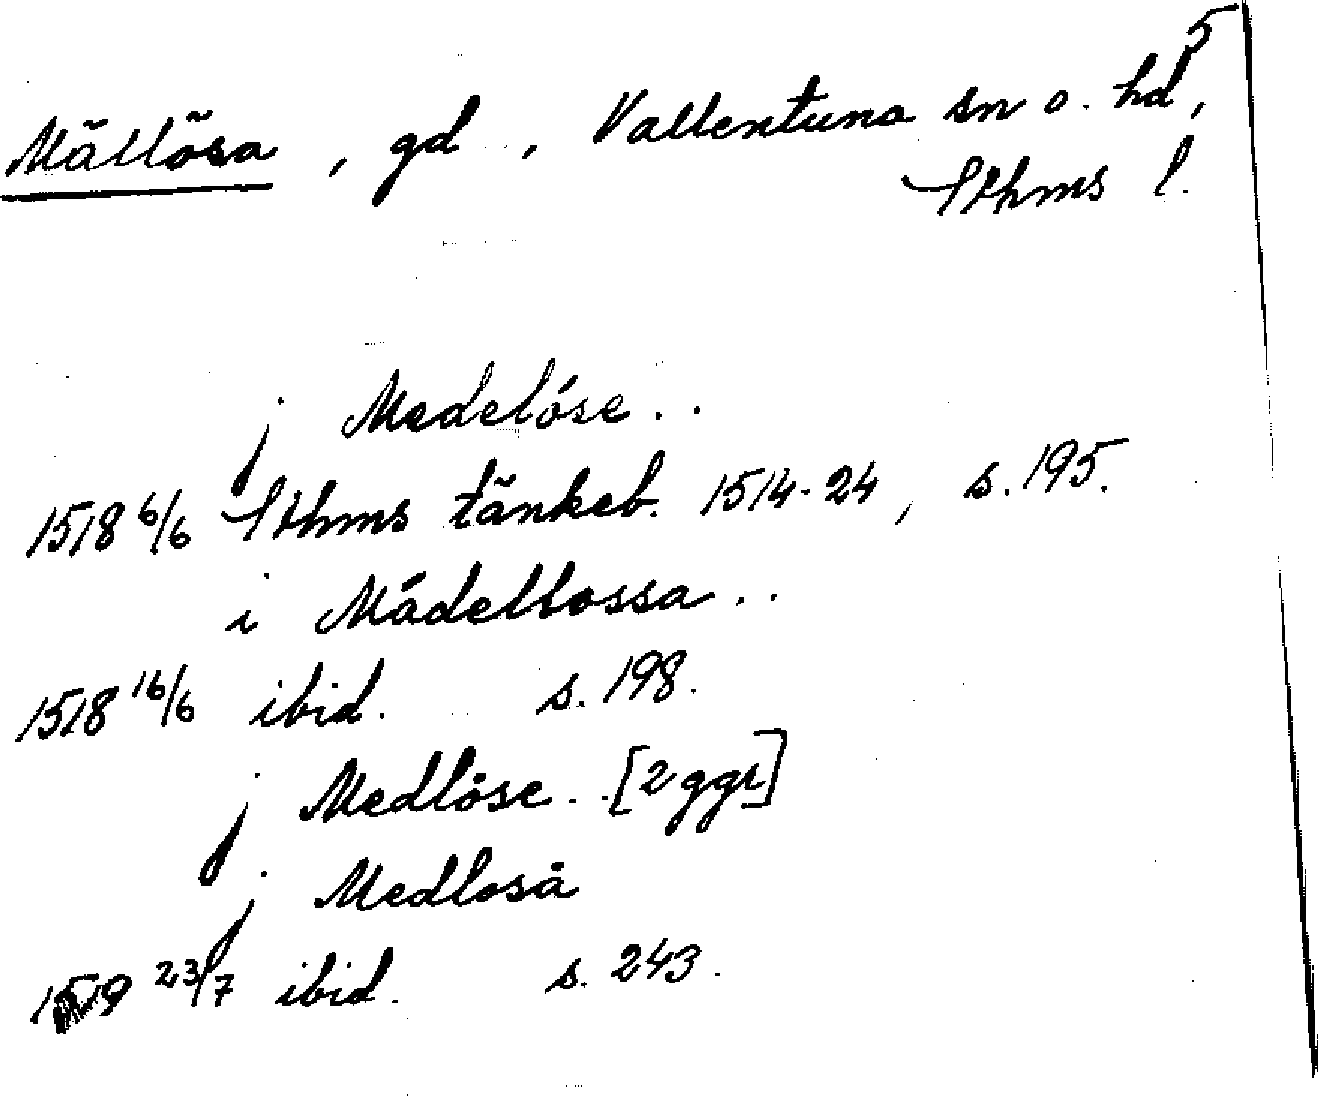 5
Mällösa, gd, Vallentuna sn o. hd,
Sthms l.
j Medelóse..
1518 6/6 Sthms tänkeb. 1514-24, s. 195.
i Mádellossa..
1518 16/6 ibid. s. 198.
j Medlöse.. [2 ggr]
j Medlosä
1519 23/7 ibid. s. 243.